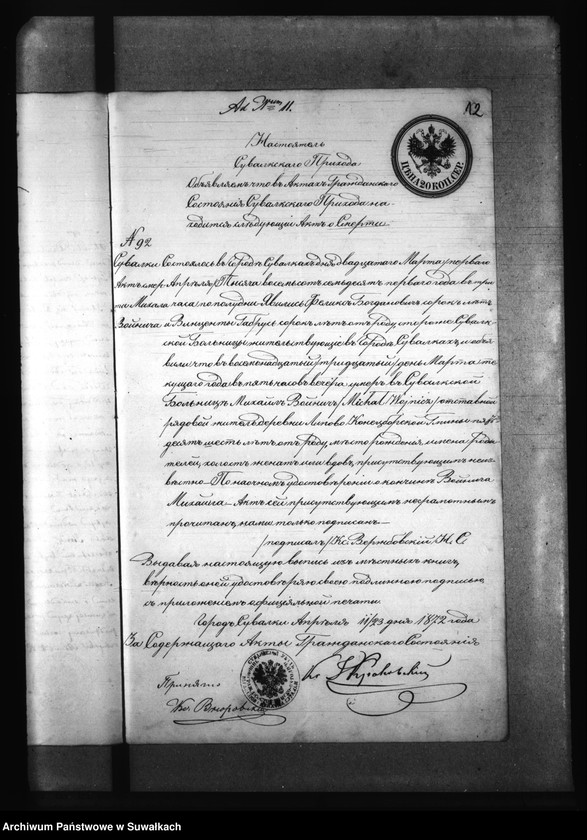 Ак № 11.
12
ЦѢНА 20 КОП. СЕР.
Настоятель
Сувалкскаго Прихода
Объявляетъ что въ Актахъ Гражданскаго
Состоянія Сувалкскаго Прихода на-
ходится слѣдующій Актъ о Смерти
№ 92
Сувалки Состоялось въ Городѣ Сувалкахъ дня двадцатаго Марта /перваго
Актъ смер. Апрѣля/ Тысяча восемьсотъ семьдесятъ перваго года въ три
та Михала часа по полудни. Явились Феликсъ Богдановичъ сорокъ лѣтъ
Войнича и Винценты Габрусь сорокъ лѣтъ отъ роду сторожи Сувалк-
ской Больницы жительствующіе въ Городѣ Сувалкахъ, и объя-
вили что въ восемнадцатый /тридцатый/ день Марта те-
кущаго года въ пять часовъ вечера умеръ въ Сувалкской
Больницѣ Михаилъ Войничъ /Michał Wojnicz/ отставной
рядовой житель деревни Липово Гмины пять
десятъ шесть лѣтъ отъ роду, мѣсто рожденія, имена роди
телей, холостъ женатъ или вдовъ, присутствующимъ неиз-
вѣстно. По наочномъ удостовѣреніи о кончинѣ Войнича
Михаила. Актъ сей присутствующимъ неграмотнымъ
прочитанъ, нами только подписанъ.
/подписалъ/ Кс. Вержбовскій /Н. С
Выдавая настоящую выпись изъ мѣстныхъ книгъ,
вѣрность оной удостовѣряю своею подлинною подписью
съ приложеніемъ оффиціальной печати.
Городъ Сувалки Апрѣля 11/23 дня 1872 года
За Содержащаго Акты Гражданскаго Состоянія
Принято
Кс
Кс
Archiwum Państwowe w Suwałkach